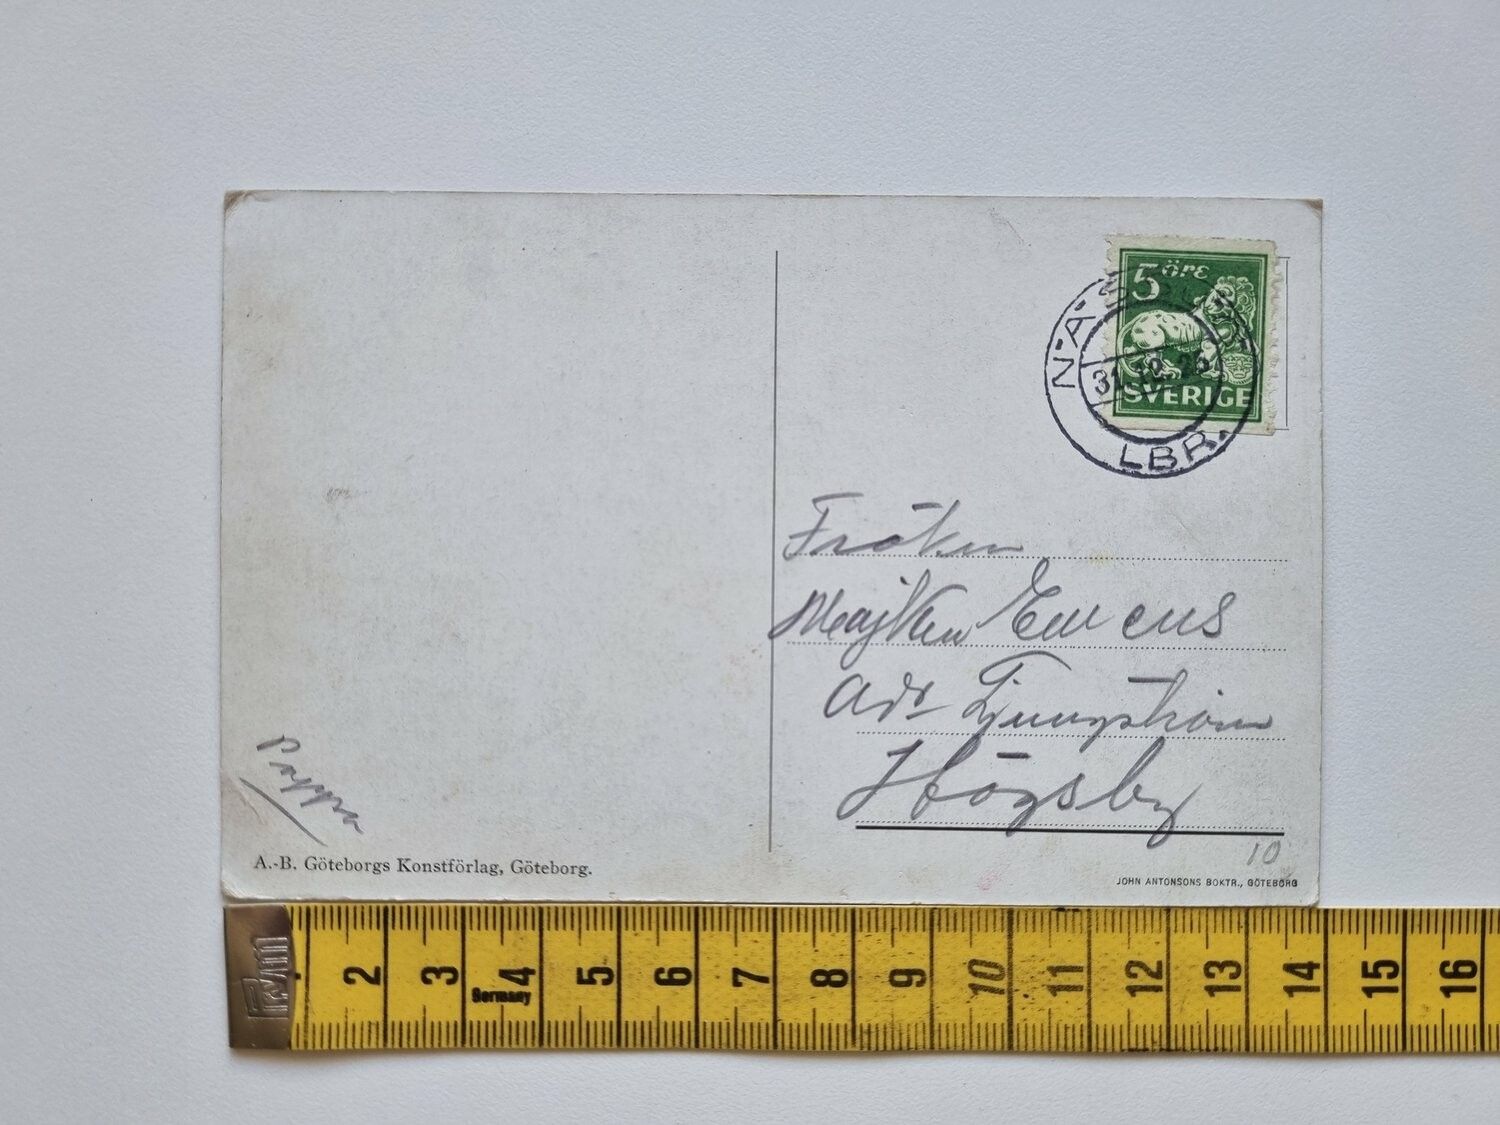 5 öre
SVERIGE
N-A-
31.12.25
LBR.
Fröken
Majken
Adr Ljungström
Högsby
Pappa
10
A.-B. Göteborgs Konstförlag, Göteborg.
JOHN ANTONSONS BOKTR., GÖTEBORG
2 3 4 5 6 7 8 9 10 11 12 13 14 15 16
Germany